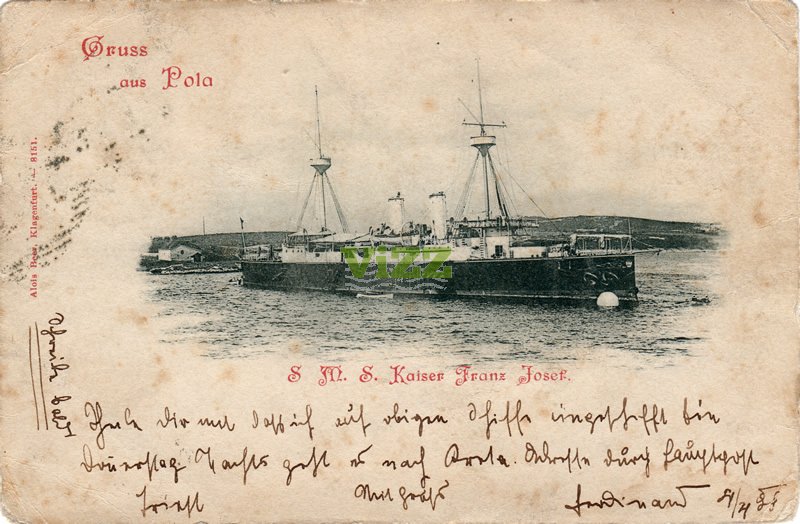 Gruss
aus Pola
Alois Beer, Klagenfurt. 8151.
vizz
S. M. S. Kaiser Franz Josef.
Theile dir mit daß ich auf obigen Schiffe eingeschifft bin
Donerstag Nachts geht es nach Kreta. Adresse durch Hauptpost
Triest Mit Gruß Ferdinand